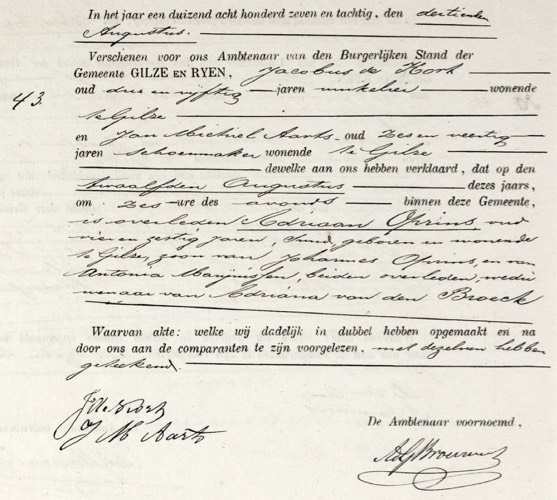 In het jaar een duizend acht honderd zeven en tachtig, den dertienden
Augustus.
Verschenen voor ons Ambtenaar van den Burgerlijken Stand der
Gemeente GILZE EN RYEN, Jacobus de Kort
43. oud drie en vijftig jaren winkelier wonende
te Gilze
en Jan Michiel Aarts oud zes en veertig
jaren schoenmaker wonende te Gilze
dewelke aan ons hebben verklaard, dat op den
twaalfden Augustus dezes jaars,
om zes ure des avonds binnen deze Gemeente,
is overleden Adriaan Oprins oud
vier en zestig jaren, smid, geboren en wonende
te Gilze, zoon van Johannes Oprins, en van
Antonia Marijnissen, beiden overleden, wedu
wenaar van Adriana van den Broeck
Waarvan akte: welke wij dadelijk in dubbel hebben opgemaakt en na
door ons aan de comparanten te zijn voorgelezen, met dezelven hebben
geteekend.
J de Kort
J M Aarts
De Ambtenaar voornoemd,
Brouwers